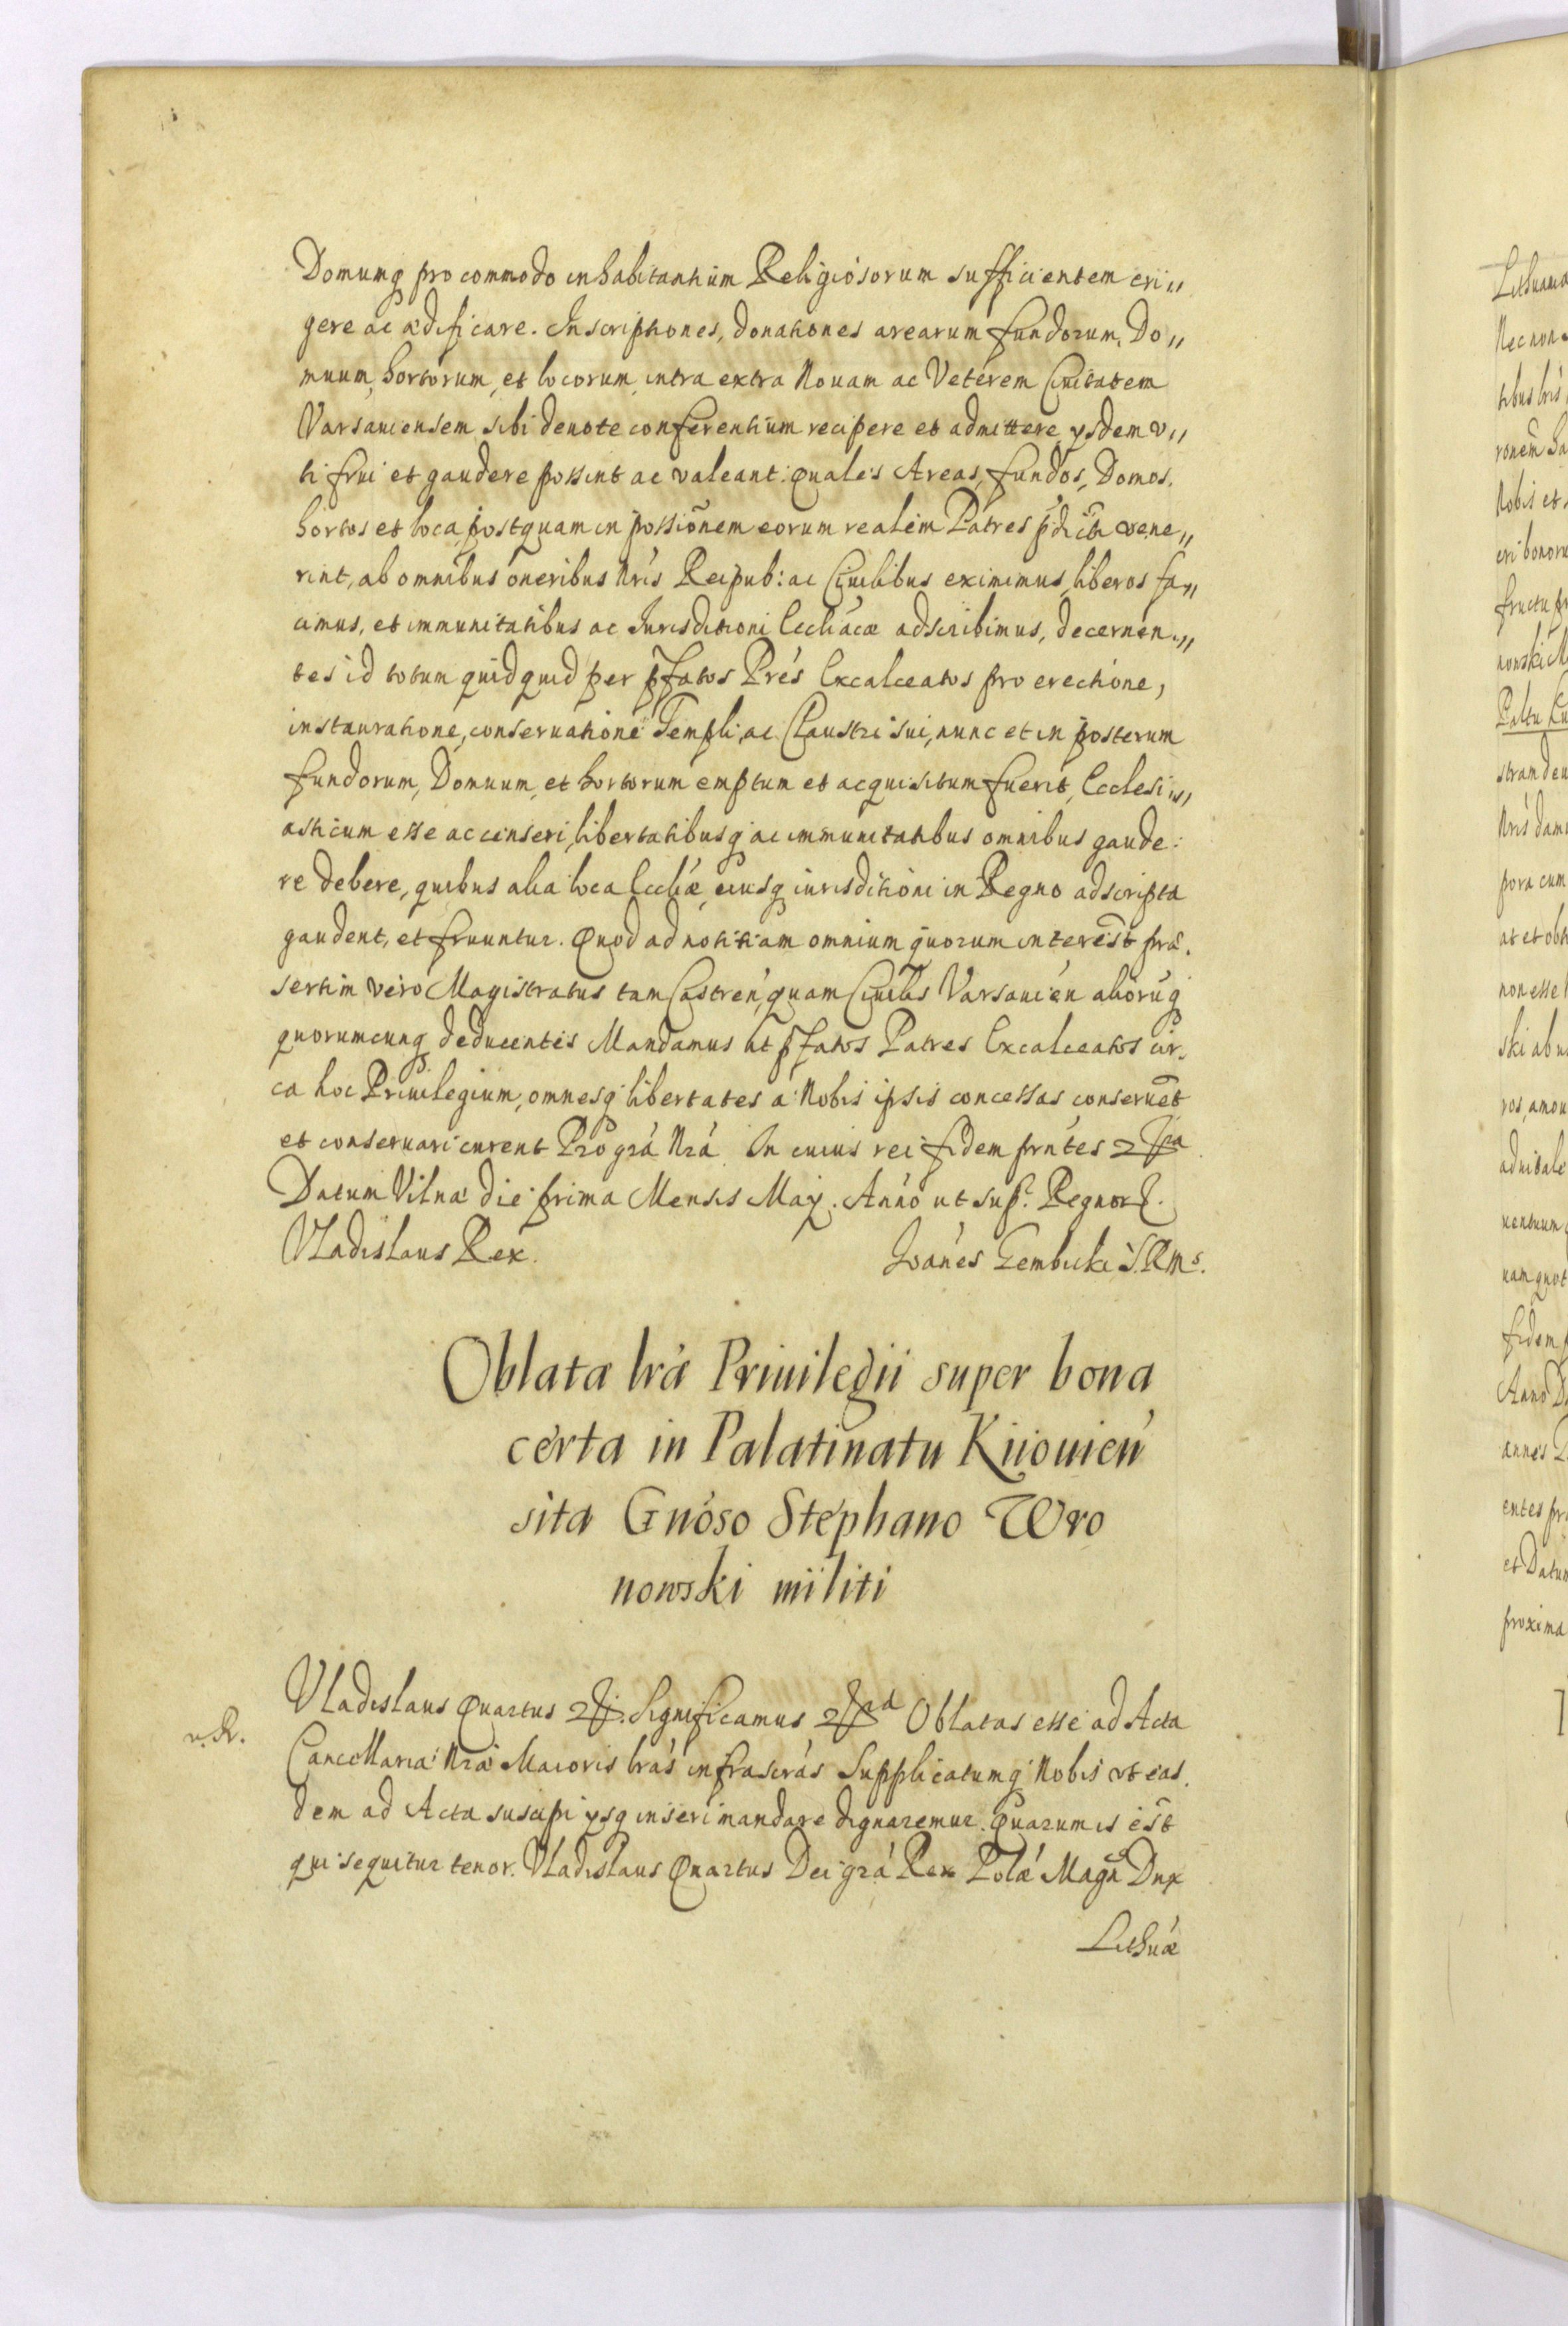 Domumq pro commodo inhabitantium Religiosorum sufficientem eri„
gere ac ædificare. Inscriptiones, donationes arearum fundorum, Do„
muum, hortorum, et locorum intra extra Nouam ac Veterem Ciuitatem
Varsauiensem sibi deuote conferentium recipere et admittere ysdem v„
ti frui et gaudere possint ac valeant. Quales Areas, fundos, Domos.
hortos et loca, postquam in possiōnem eorum realem Patres pdicti vene„
rint, ab omnibus oneribus Nrīs Reipub: ac Ciuilibus eximimus, liberos fa„
cimus, et immunitatibus ac Iurisditioni Eccliácæ adscribimus, decernen„
tes id totum quidquid per pfatos Prés Excalceatos pro erectione,
instauratione, conseruatione Templi, ac Claustri sui, nunc et in posterum
fundorum, Domuum, et hortorum emptum et acquisitum fuerit, Ecclesi„
asticum esse ac censeri, libertatibusq ac immunitatibus omnibus gaude:
re debere, quibus alia loca Eccliæ, eiusq iurisditioni in Regno adscripta
gaudent, et fruuntur. Quod ad notitiam omnium quorum interest præ.
sertim vero Magistratus tam Castren, quam Ciuilis Varsauien aliorūq
quorumcunq deducentes Mandamus ut pfatos Patres Excalceatos cir.
ca hoc Priuilegium, omnesq libertates a Nobis ipsis concessas conseruēt
et conseruari curent Pro grá Nrá In cuius rei fidem prntes
Datum Vilnæ die prima Mensis May. Anno ut sup. Regnor.
Vladislaus Rex.
Ioanes Gembicki S.R.Ms.
Oblata lrá Priuilegii super bona
certa in Palatinatu Kiiouień
sita Gnóso Stephano Wro
nowski militi
Vladislaus Quartus Significamus Oblatas esse ad Acta
n. R.
Cancellariæ Nræ Maioris lrás infrascrás Supplicatumq Nobis vt eas.
dem ad Acta suscipi ysq inseri mandare dignaremur. Quarum is est
qui sequitur tenor. Vladislaus Quartus Dei grá Rex Polæ Magn Dux
Lithuæ
Lithuania
Nec non
nowski
strandeu
Nrīs dam
pora cum
at et obt
non esse
ski ab
fidem
Anno D
entes
et Datum
proxima